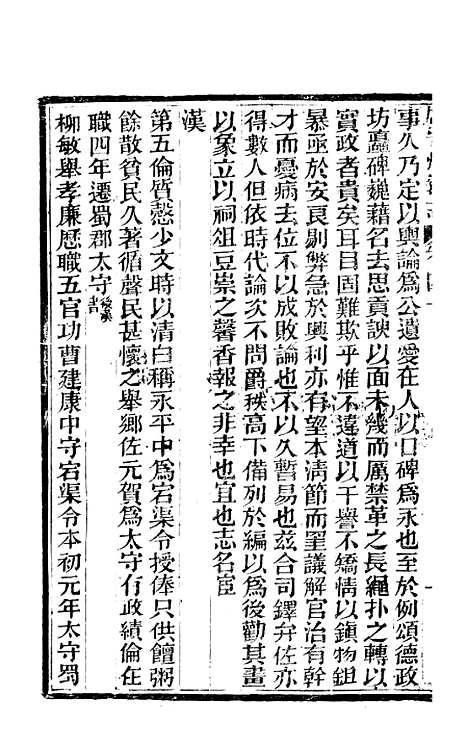 事久乃定以輿論爲公遺愛在人以口碑爲永也至於例頌德政
坊矗碑巍藉名去思貢諛以面未幾而厲禁革之長繩扑之轉以
實政者貴矣耳目固難欺乎惟不違道以干譽不矯情以鎭物鉏
暴亟於安良剔弊急於興利亦有望本淸節而罣議解官治有幹
才而憂病去位不以成敗論也不以久暫易也兹合司鐸弁佐亦
得數人但依時代論次不問爵秩高下備列於編以爲後勸其畫
以象立以祠俎豆崇之馨香報之非幸也宜也志名宦
漢
第五倫質慤少文時以清白稱永平中爲宕渠令授俸只供饘粥
餘散貧民久著循聲民甚懷之舉鄉佐元賀爲太守有政績倫在
職四年遷蜀郡太守後漢書
柳敏舉孝廉歷職五官功曹建康中守宕渠令本初元年太守蜀